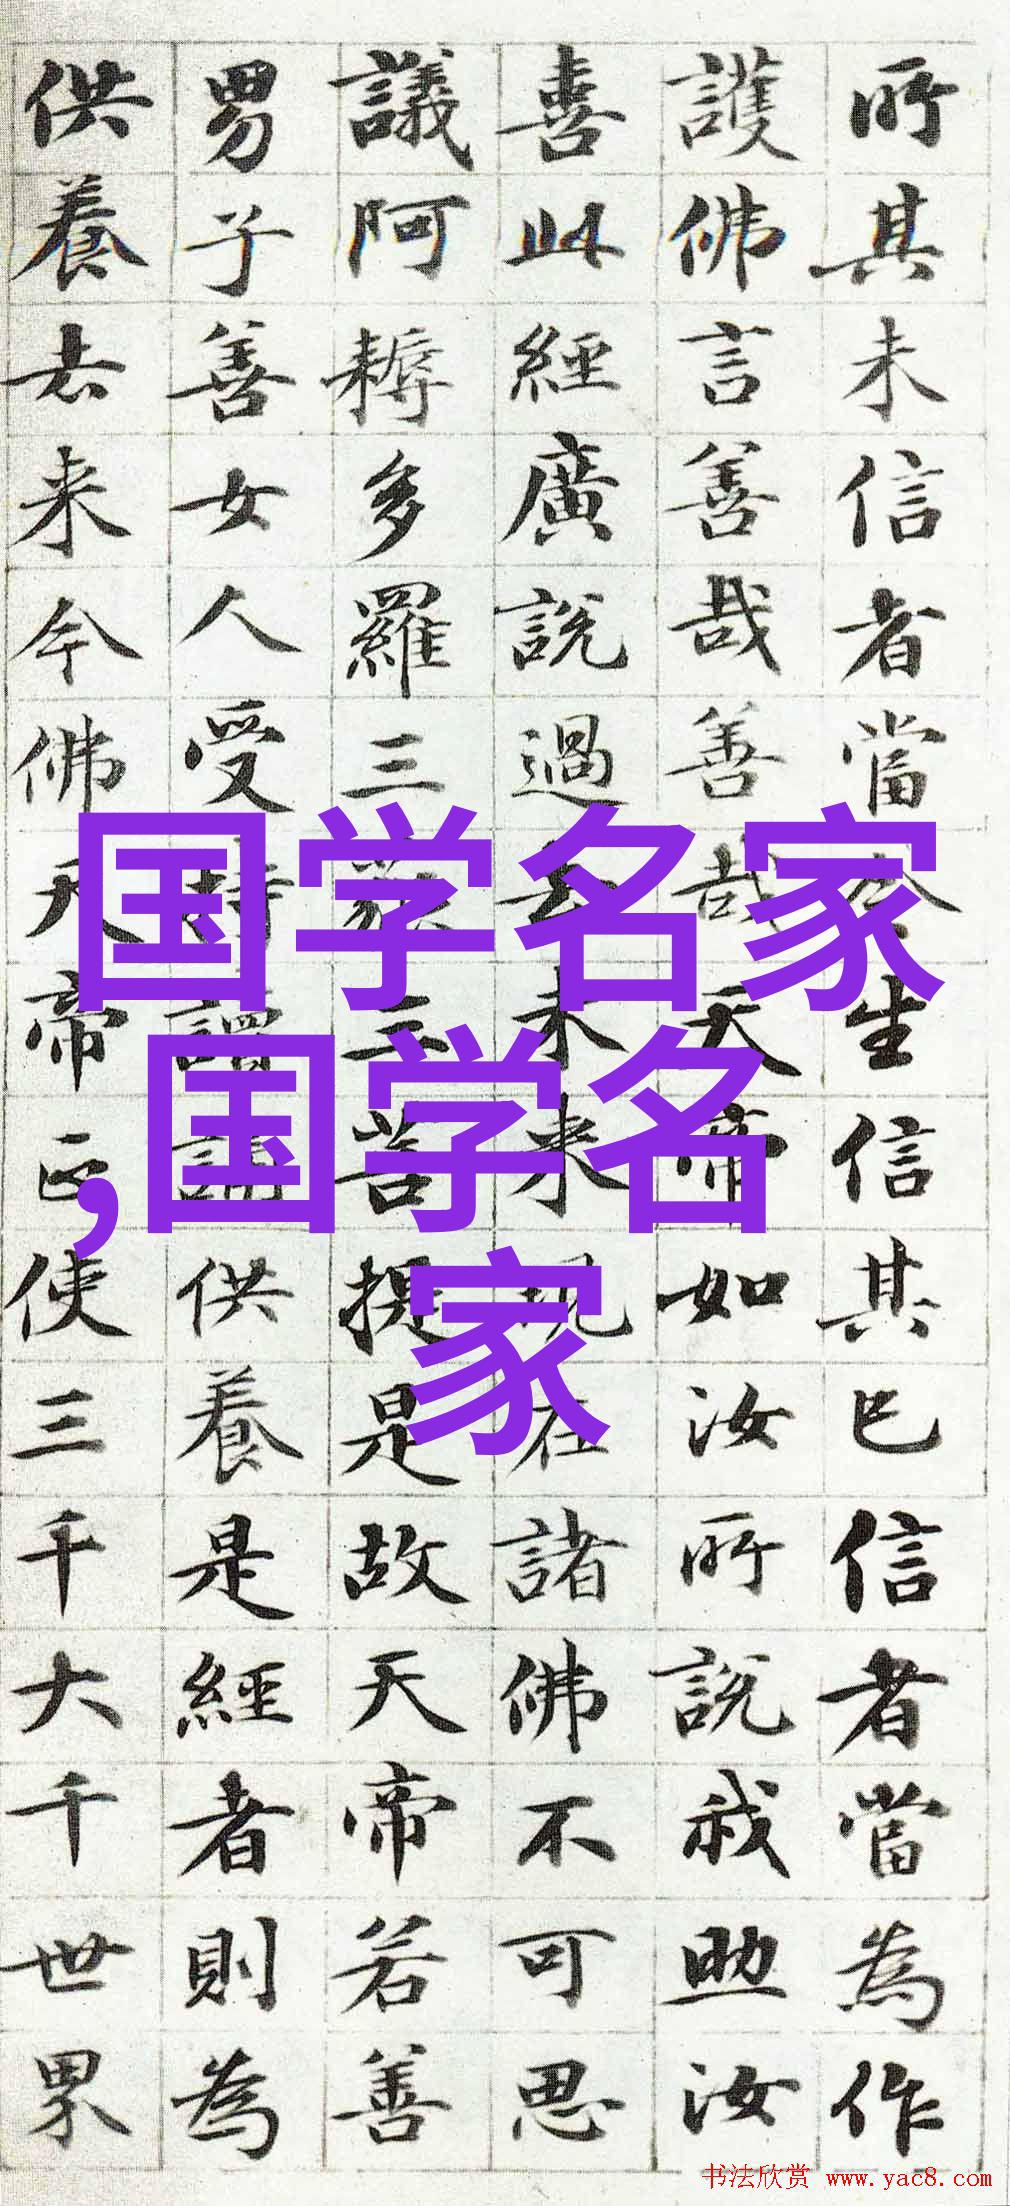 所其未信者當令生信其已信者當為作
護佛言善哉善哉天帝如汝所說我助汝
喜此經廣說過去未來現在諸佛不可思
議阿耨多羅三藐三菩提是故天帝若善
男子善女人受持讀誦供養是經者則為
供養去来今佛天帝正使三千大千世界
国学名家
,国学名
家
书法欣赏 www.yac8.com